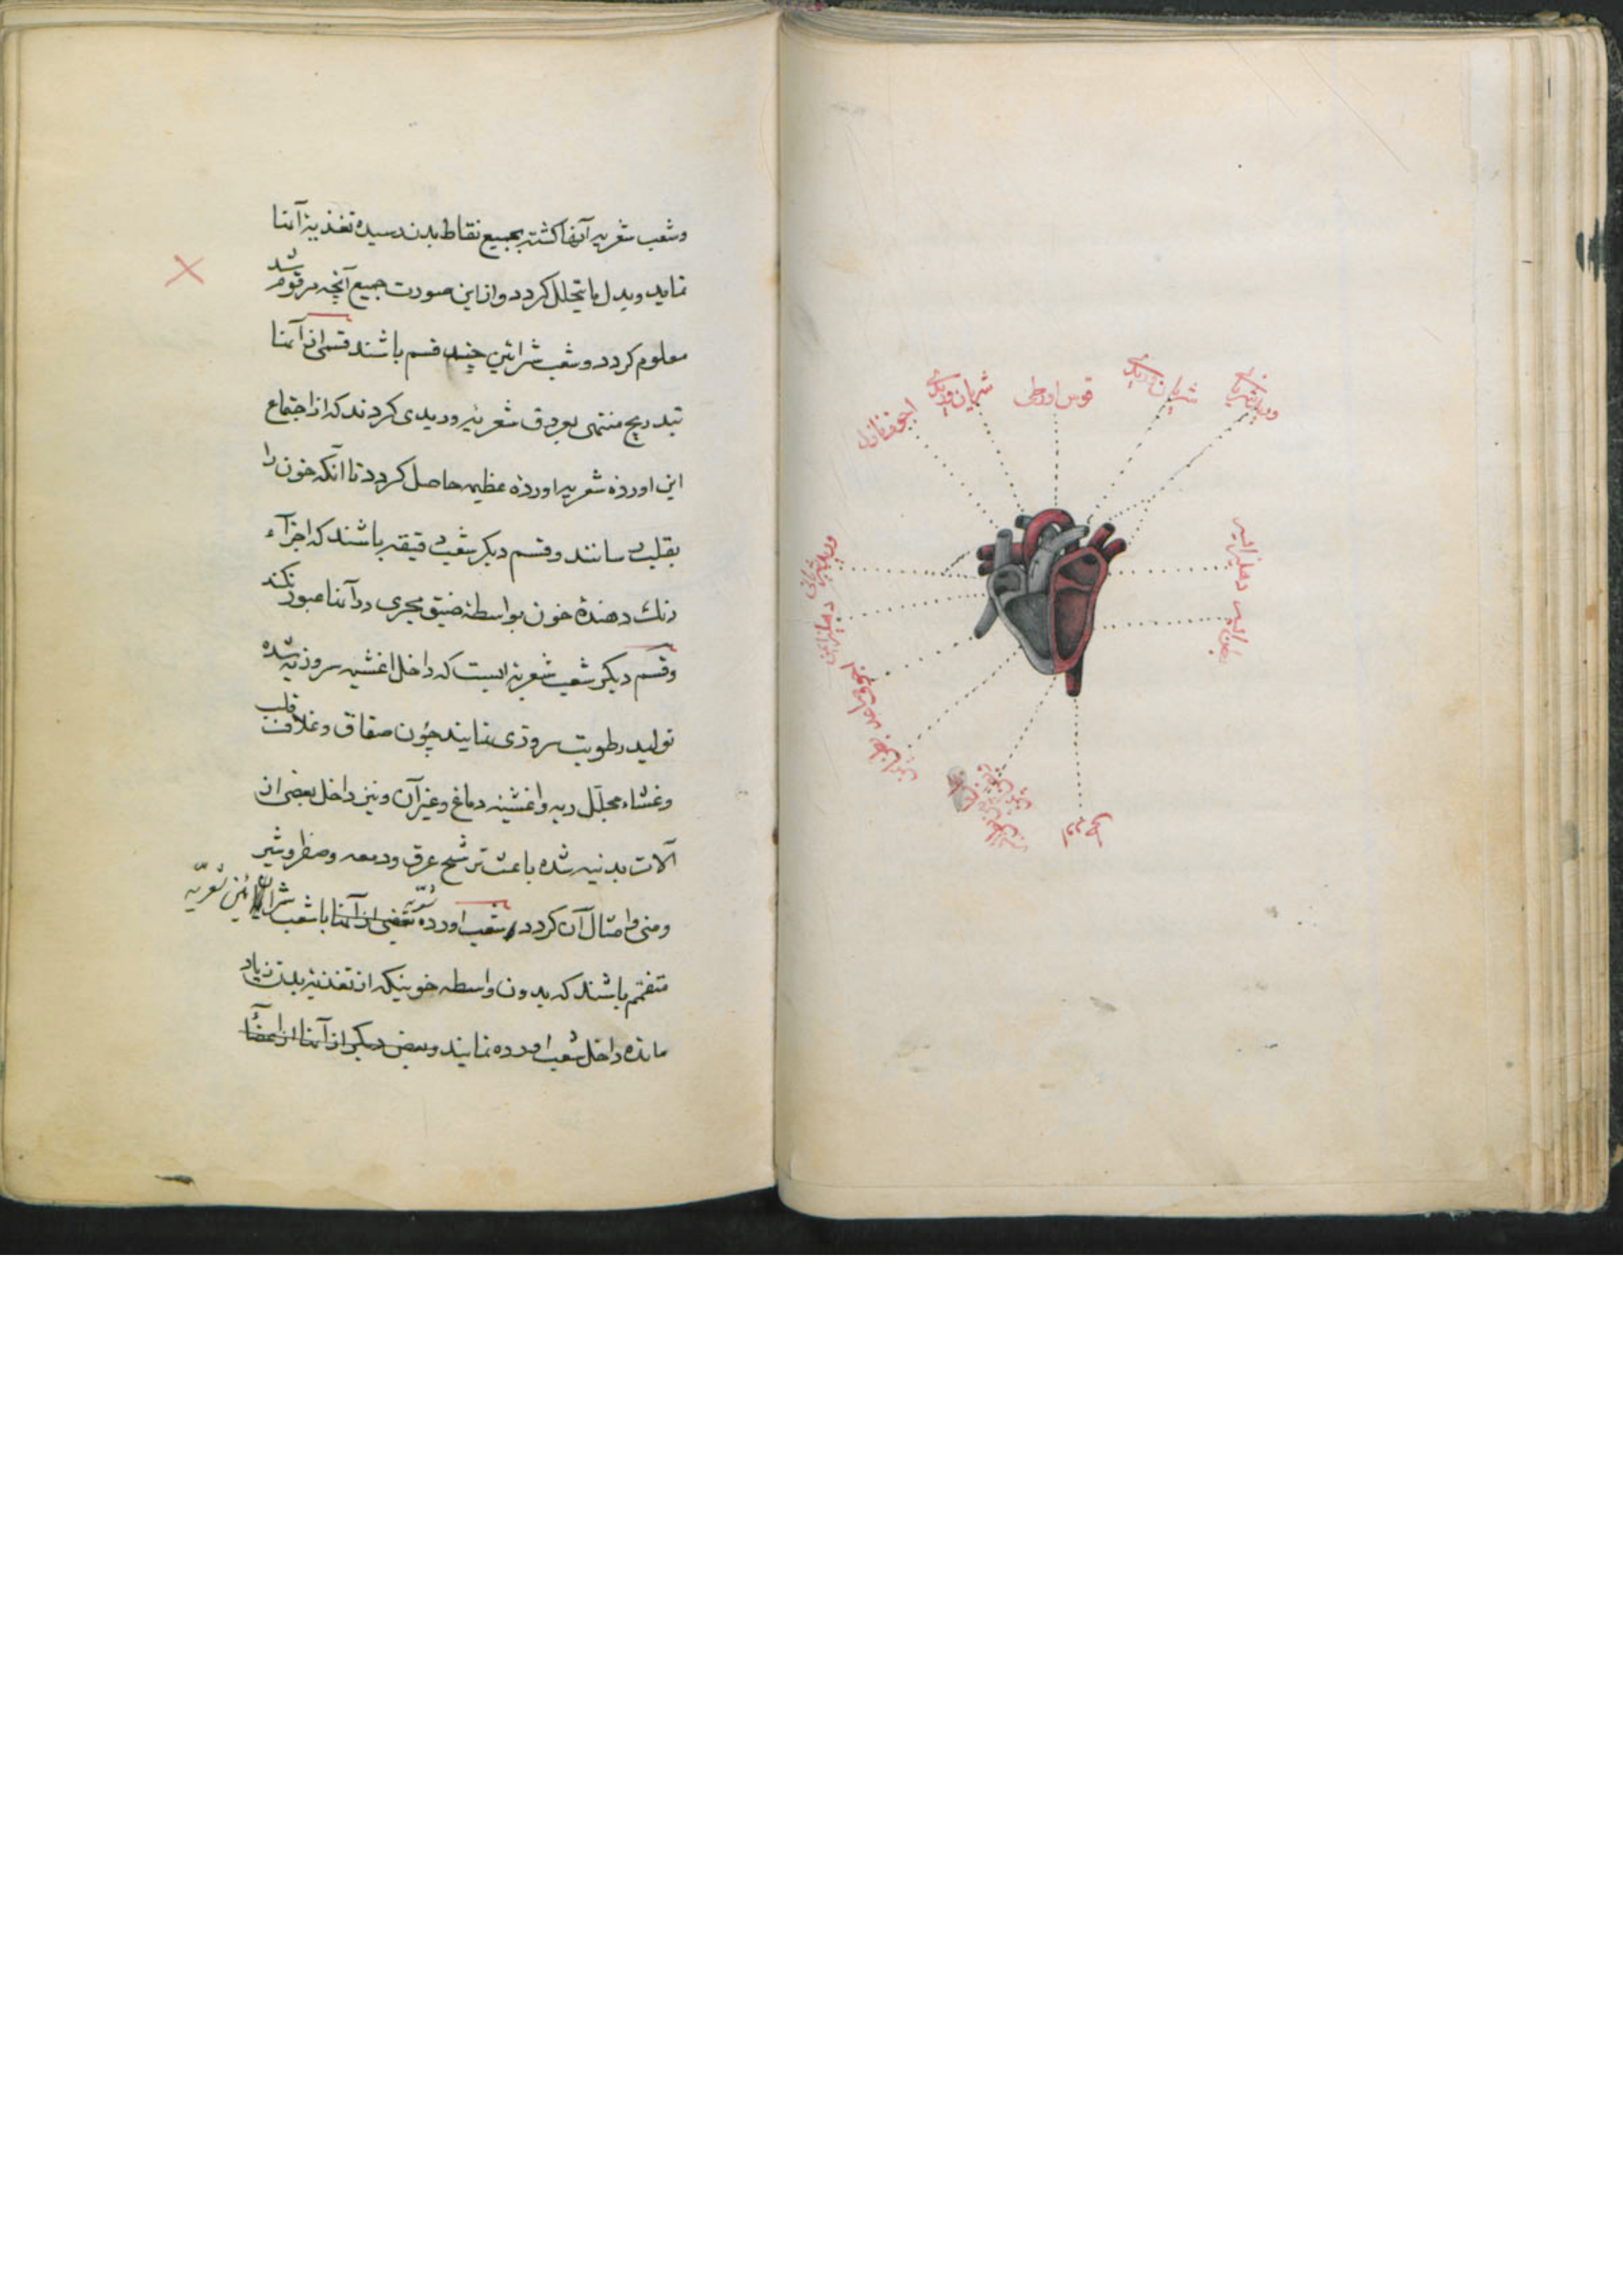 ورید شریانی
شریان وریدی
قوس اورطی
شریان وریدی
اجوف نازل
دهلیز ایسر
بطن ایسر
ورید شریانی
دهلیز ایمن
اورطی
وشعب شعریه آنها کشته بجمیع نقاط بدن رسیده تغذیهٔ آنها
نماید وبدل ما یتحلل کردد وازاین صورت جمیع آنچه مرقوم شد
معلوم کردد وشعب شرائین چند قسم باشند قسمی از آنها
بتدریج منتهی بعروق شعریه وریدی کردند که از اجتماع
این اورده شعریه اورده عظیمه حاصل کردد تا آنکه خون را
بقلب رسانند وقسم دیکر شعب دقیقه باشند که اجزاء
رنك دهندهٔ خون بواسطهٔ ضیق مجری در آنها عبور نکند
وقسم دیکر شعب شعریه ایست که داخل اغشیه سروزیه شده
تولید رطوبت سروزی نمایند چون صفاق وغلاف قلب
وغشاء مجلل ریه واغشیه دماغ وغیر آن ونیز داخل بعضی از
آلات بدنیه شده باعث ترشح عرق ودمعه ومخاط وشیر
ومنی وامثال آن کردد شعب اورده شعریه بعضی از آنها با شعب شرائین شعریه
متفمم باشند که بدون واسطه خونیکه از تغذیه بدن زیاد
مانده داخل شعب اورده نمایند وبعض دیکر از آنها از اعضاء